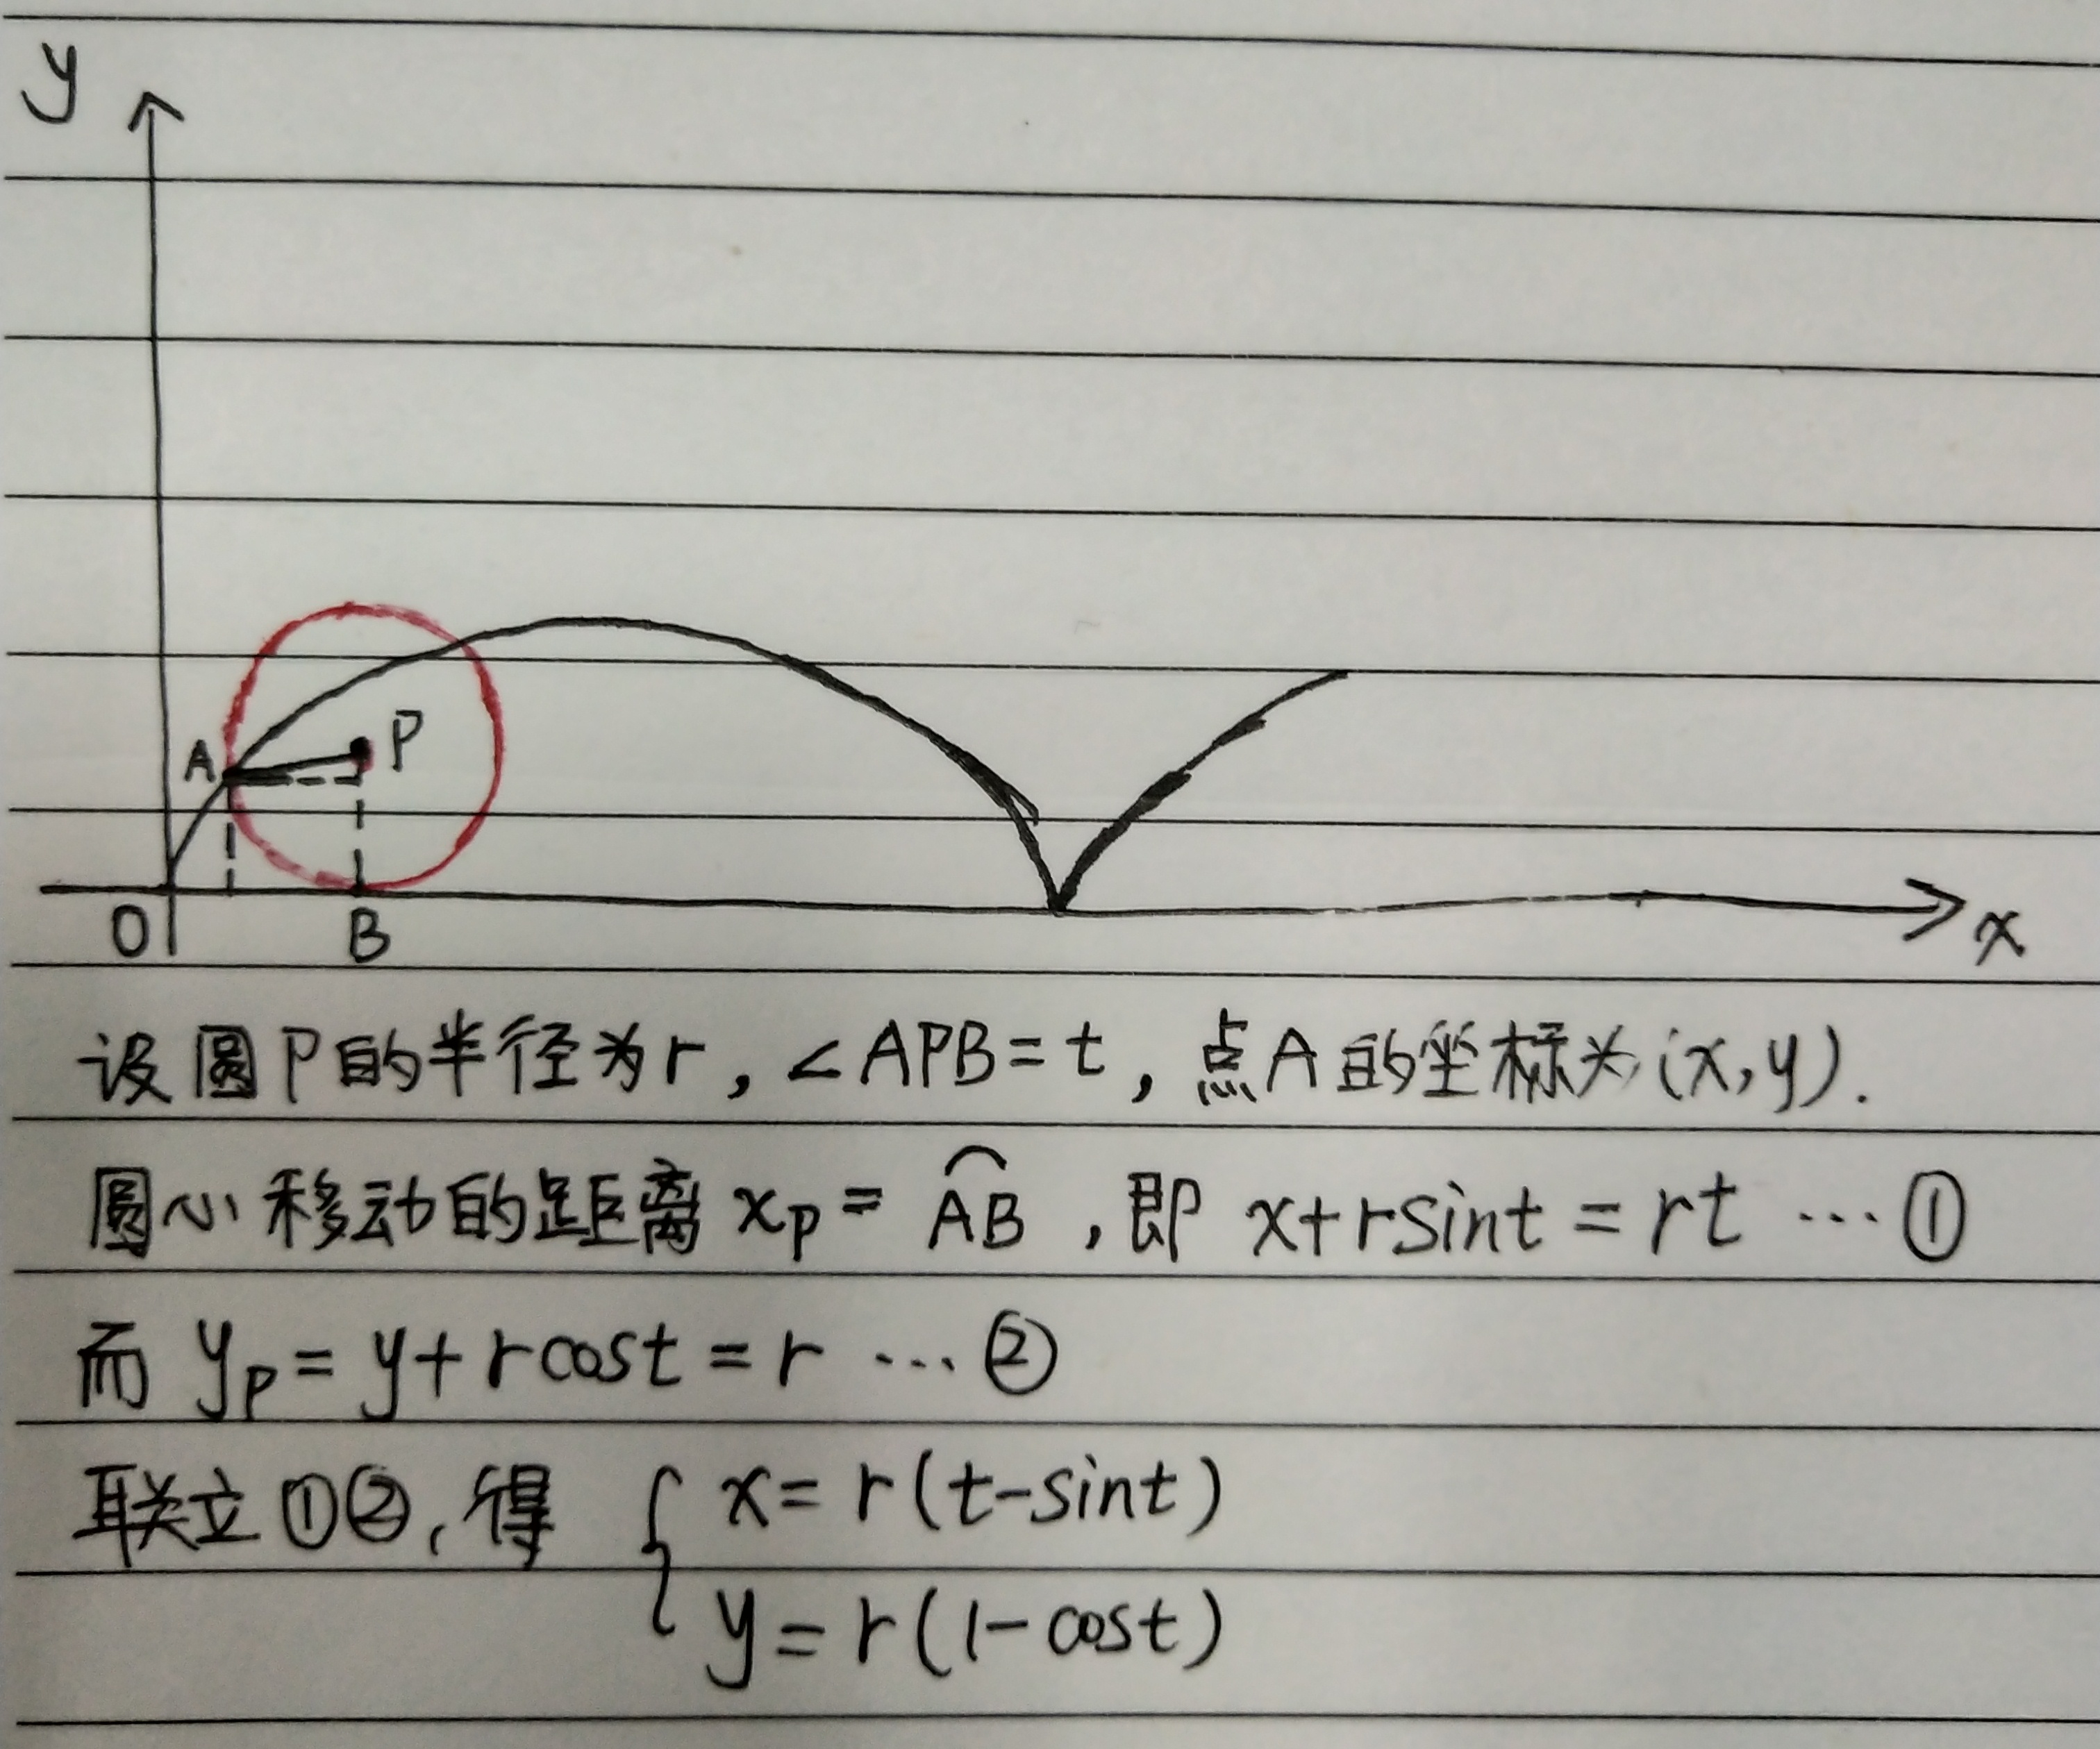 y
A P
O B x
设圆P的半径为r，∠APB=t，点A的坐标为(x,y).
圆心移动的距离 xₚ = ⌒AB，即 x+rsint=rt …①
而 yₚ=y+rcost=r …②
联立①②，得 { x=r(t-sint)
y=r(1-cost)